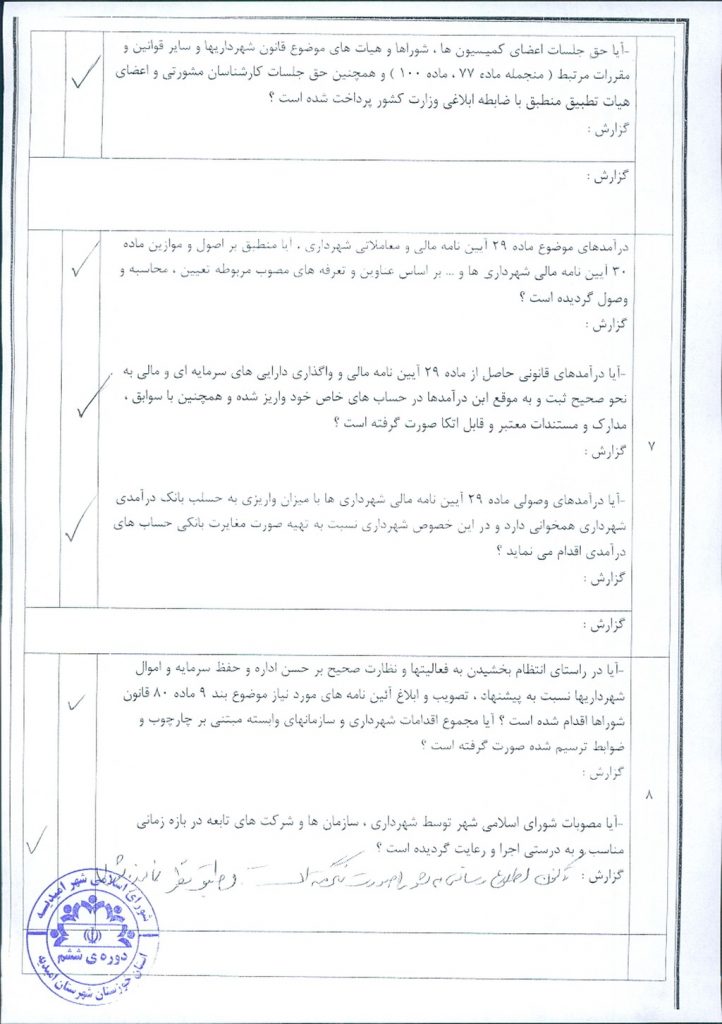 -آیا حق جلسات اعضای کمیسیون ها ، شوراها و هیات های موضوع قانون شهرداریها و سایر قوانین و
مقررات مرتبط ( منجمله ماده ۷۷ ، ماده ۱۰۰ ) و همچنین حق جلسات کارشناسان مشورتی و اعضای
هیات تطبیق منطبق با ضابطه ابلاغی وزارت کشور پرداخت شده است ؟
گزارش :
گزارش :
۷
درآمدهای موضوع ماده ۲۹ آیین نامه مالی و معاملاتی شهرداری ، آیا منطبق بر اصول و موازین ماده
۳۰ آیین نامه مالی شهرداری ها و ... بر اساس عناوین و تعرفه های مصوب مربوطه تعیین ، محاسبه و
وصول گردیده است ؟
گزارش :
-آیا درآمدهای قانونی حاصل از ماده ۲۹ آیین نامه مالی و واگذاری دارایی های سرمایه ای و مالی به
نحو صحیح ثبت و به موقع این درآمدها در حساب های خاص خود واریز شده و همچنین با سوابق ،
مدارک و مستندات معتبر و قابل اتکا صورت گرفته است ؟
گزارش :
-آیا درآمدهای وصولی ماده ۲۹ آیین نامه مالی شهرداری ها با میزان واریزی به حسلب بانک درآمدی
شهرداری همخوانی دارد و در این خصوص شهرداری نسبت به تهیه صورت مغایرت بانکی حساب های
درآمدی اقدام می نماید ؟
گزارش :
گزارش :
۸
-آیا در راستای انتظام بخشیدن به فعالیتها و نظارت صحیح بر حسن اداره و حفظ سرمایه و اموال
شهرداریها نسبت به پیشنهاد ، تصویب و ابلاغ آئین نامه های مورد نیاز موضوع بند ۹ ماده ۸۰ قانون
شوراها اقدام شده است ؟ آیا مجموع اقدامات شهرداری و سازمانهای وابسته مبتنی بر چارچوب و
ضوابط ترسیم شده صورت گرفته است ؟
گزارش :
-آیا مصوبات شورای اسلامی شهر توسط شهرداری ، سازمان ها و شرکت های تابعه در بازه زمانی
مناسب و به درستی اجرا و رعایت گردیده است ؟
گزارش : تاکنون اطلاع رسانی به صورت نگرفته
شورای اسلامی شهر امیدیه
دوره ی ششم
استان خوزستان شهرستان امیدیه